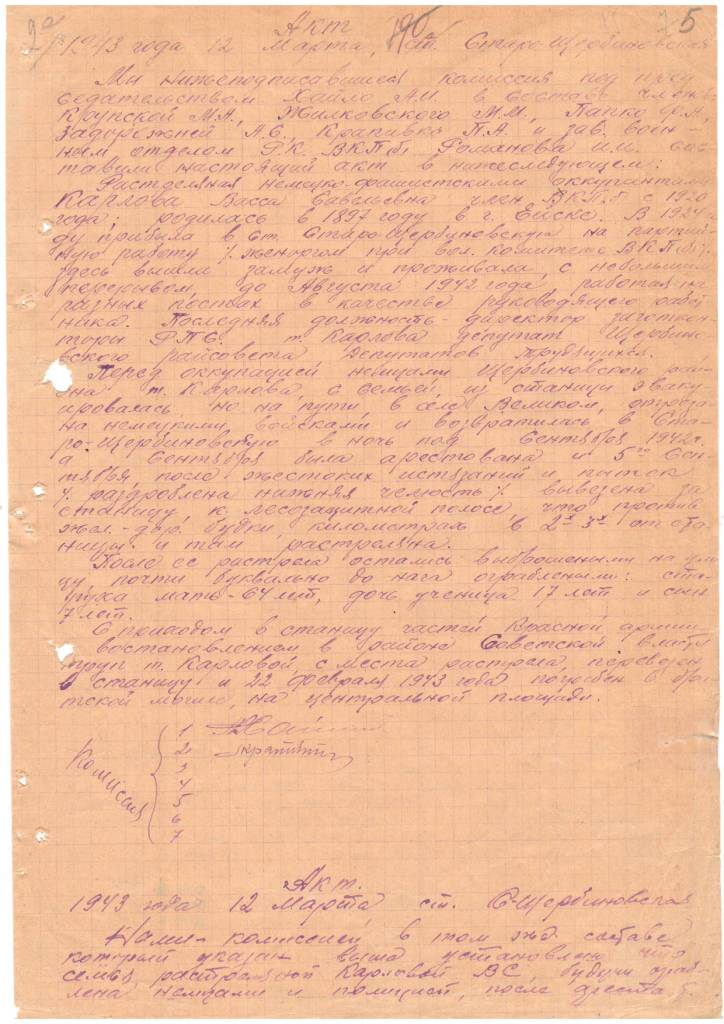 Акт
1943 года 12 Марта, ст. Старо-Щербиновская
5
Мы нижеподписавшиеся комиссия под пред
седательством Хайло А.И. в составе членов
Крупской М.А., Жилковского М.М., Папко Ф.А,
Задорожней А.С, Крапивко П.А. и зав. воен-
ным отделом РК ВКП/б/ Романова И.И. сос-
тавили настоящий акт в нижеследующем:
Растреляная немецко-фашистскими оккупантами
Карлова Васса Савельевна член ВКП/б с 1920
года; родилась в 1897 году в г. Ейске. В 1924 г
ду прибыла в ст. Старо-Щербиновскую на партий-
ную работу /. женоргом при вол. комитете ВКП/б/.
здесь вышла замуж и проживала, с небольшим
перерывом, до Августа 1942 года, работая на
разных постах в качестве руководящего работ-
ника. Последняя должность - директор заготкон-
торы РПС. т. Карлова депутат Щербино-
вского райсовета депутатов трудящихся.
Перед оккупацией немцами Щербиновского рай-
на т. Карлова, с семьей, из станицы эваку-
ировалась, но на пути, в селе Великом, отреза-
на немецкими войсками и возвратилась в Ста-
ро-Щербиновскую в ночь под Сентября 1942г.
а Сентября была арестована и 5го Сен-
тября, после жестоких истязаний и пыток
/. раздроблена нижняя челюсть /. вывезена за
станицу, к лесозащитной полосе, что против
жел.-дор. будки, километрах в 2х-3х от ста-
ницы и там растреляна.
После ее растрела остались выброшеными на ули
цу, почти буквально до нага ограблеными: ста-
руха мать - 64 лет, дочь ученица 17 лет и сын
7 лет.
С приходом в станицу частей Красной армии,
востановлением в районе Советской власти
труп т. Карловой с места растрела, перевезен
в станицу и 22 февраля 1943 года погребен в бра-
тской могиле, на центральной площади.
Комиссия
1
2
3
4
5
6
7
Акт.
1943 года 12 Марта ст. С-Щербиновская
Нами - комиссией, в том же составе
который указан выше установлено что
семья растреляной Карловой ВС, будучи ограб-
лена немцами и полицией, после ареста т.